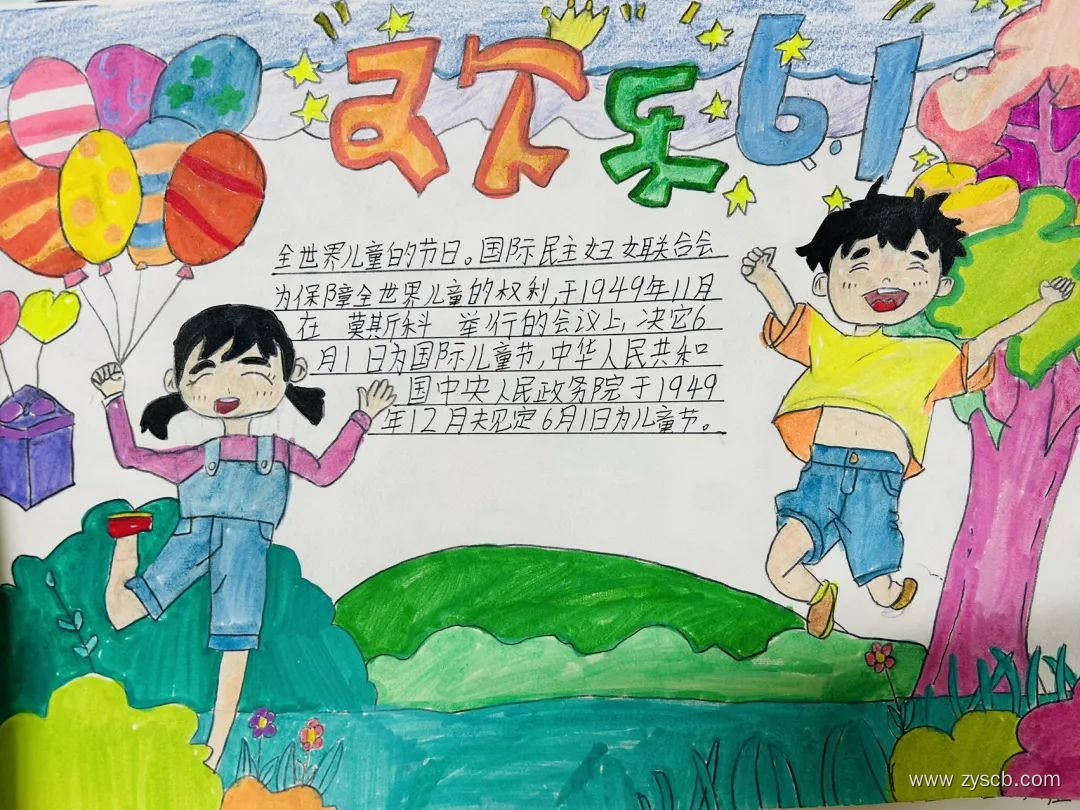 欢乐6.1
全世界儿童的节日。国际民主妇女联合会
为保障全世界儿童的权利,于1949年11月
在 莫斯科 举行的会议上,决定6
月1日为国际儿童节,中华人民共和
国中央人民政务院于1949
年12月 定6月1日为儿童节。
www.zyscb.com